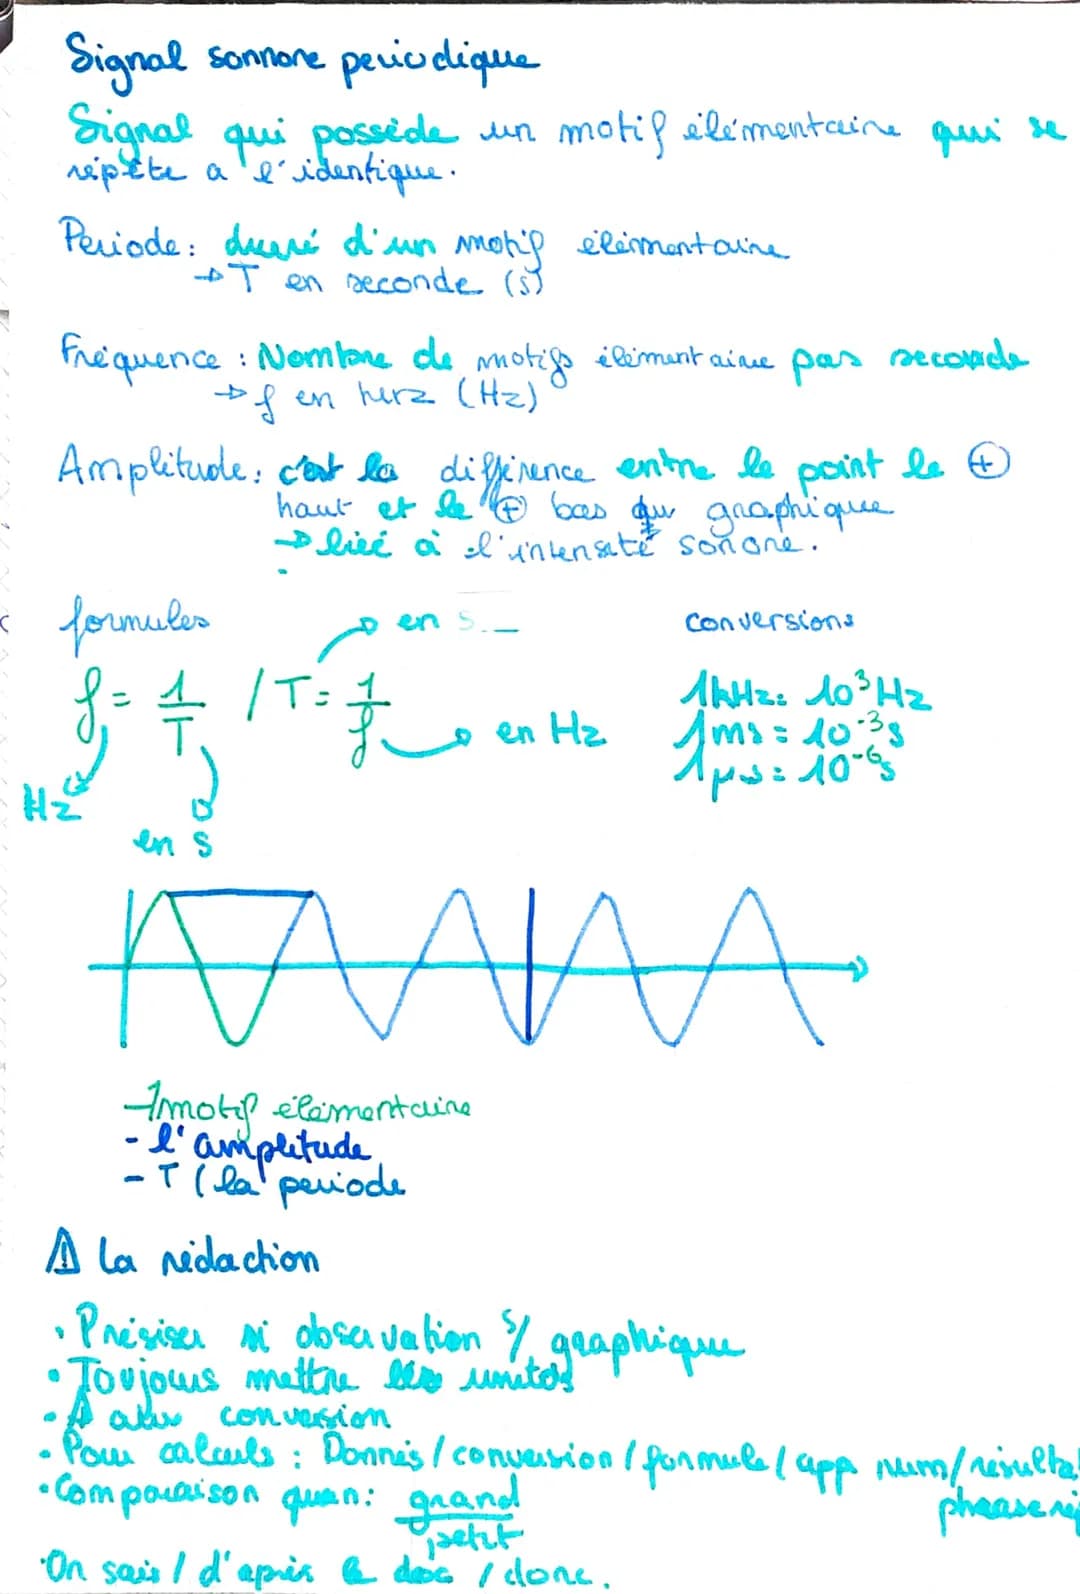 Signal sonnore periodique
Signal qui possède un motif élémentaire qui se
répète a l'identique.
Periode : durré d'un motif élémentaire
→ T en seconde (s)
Fréquence : Nombre de motifs élémentaire par seconde
→ f en herz (Hz)
Amplitude : c'est la différence entre le point le ⊕
haut et le ⊕ bas du graphique
→ liéé à l'intensité sonore.
formules → en s conversions
f = 1/T / T = 1/f → en Hz
Hz
en s
1kHz = 10³Hz
1ms = 10⁻³s
1µs = 10⁻⁶s
- 1 motif élémentaire
- l'amplitude
- T (la periode
⚠ la rédaction
• Présiser si observation s/ graphique
• Toujours mettre les unités
• ⚠ aux conversion
• Pour calculs : Donnés / conversion / formule / app num / résulta
phrase ré
• Comparaison quan : grand/petit
• On sais / d'après le doc / donc.